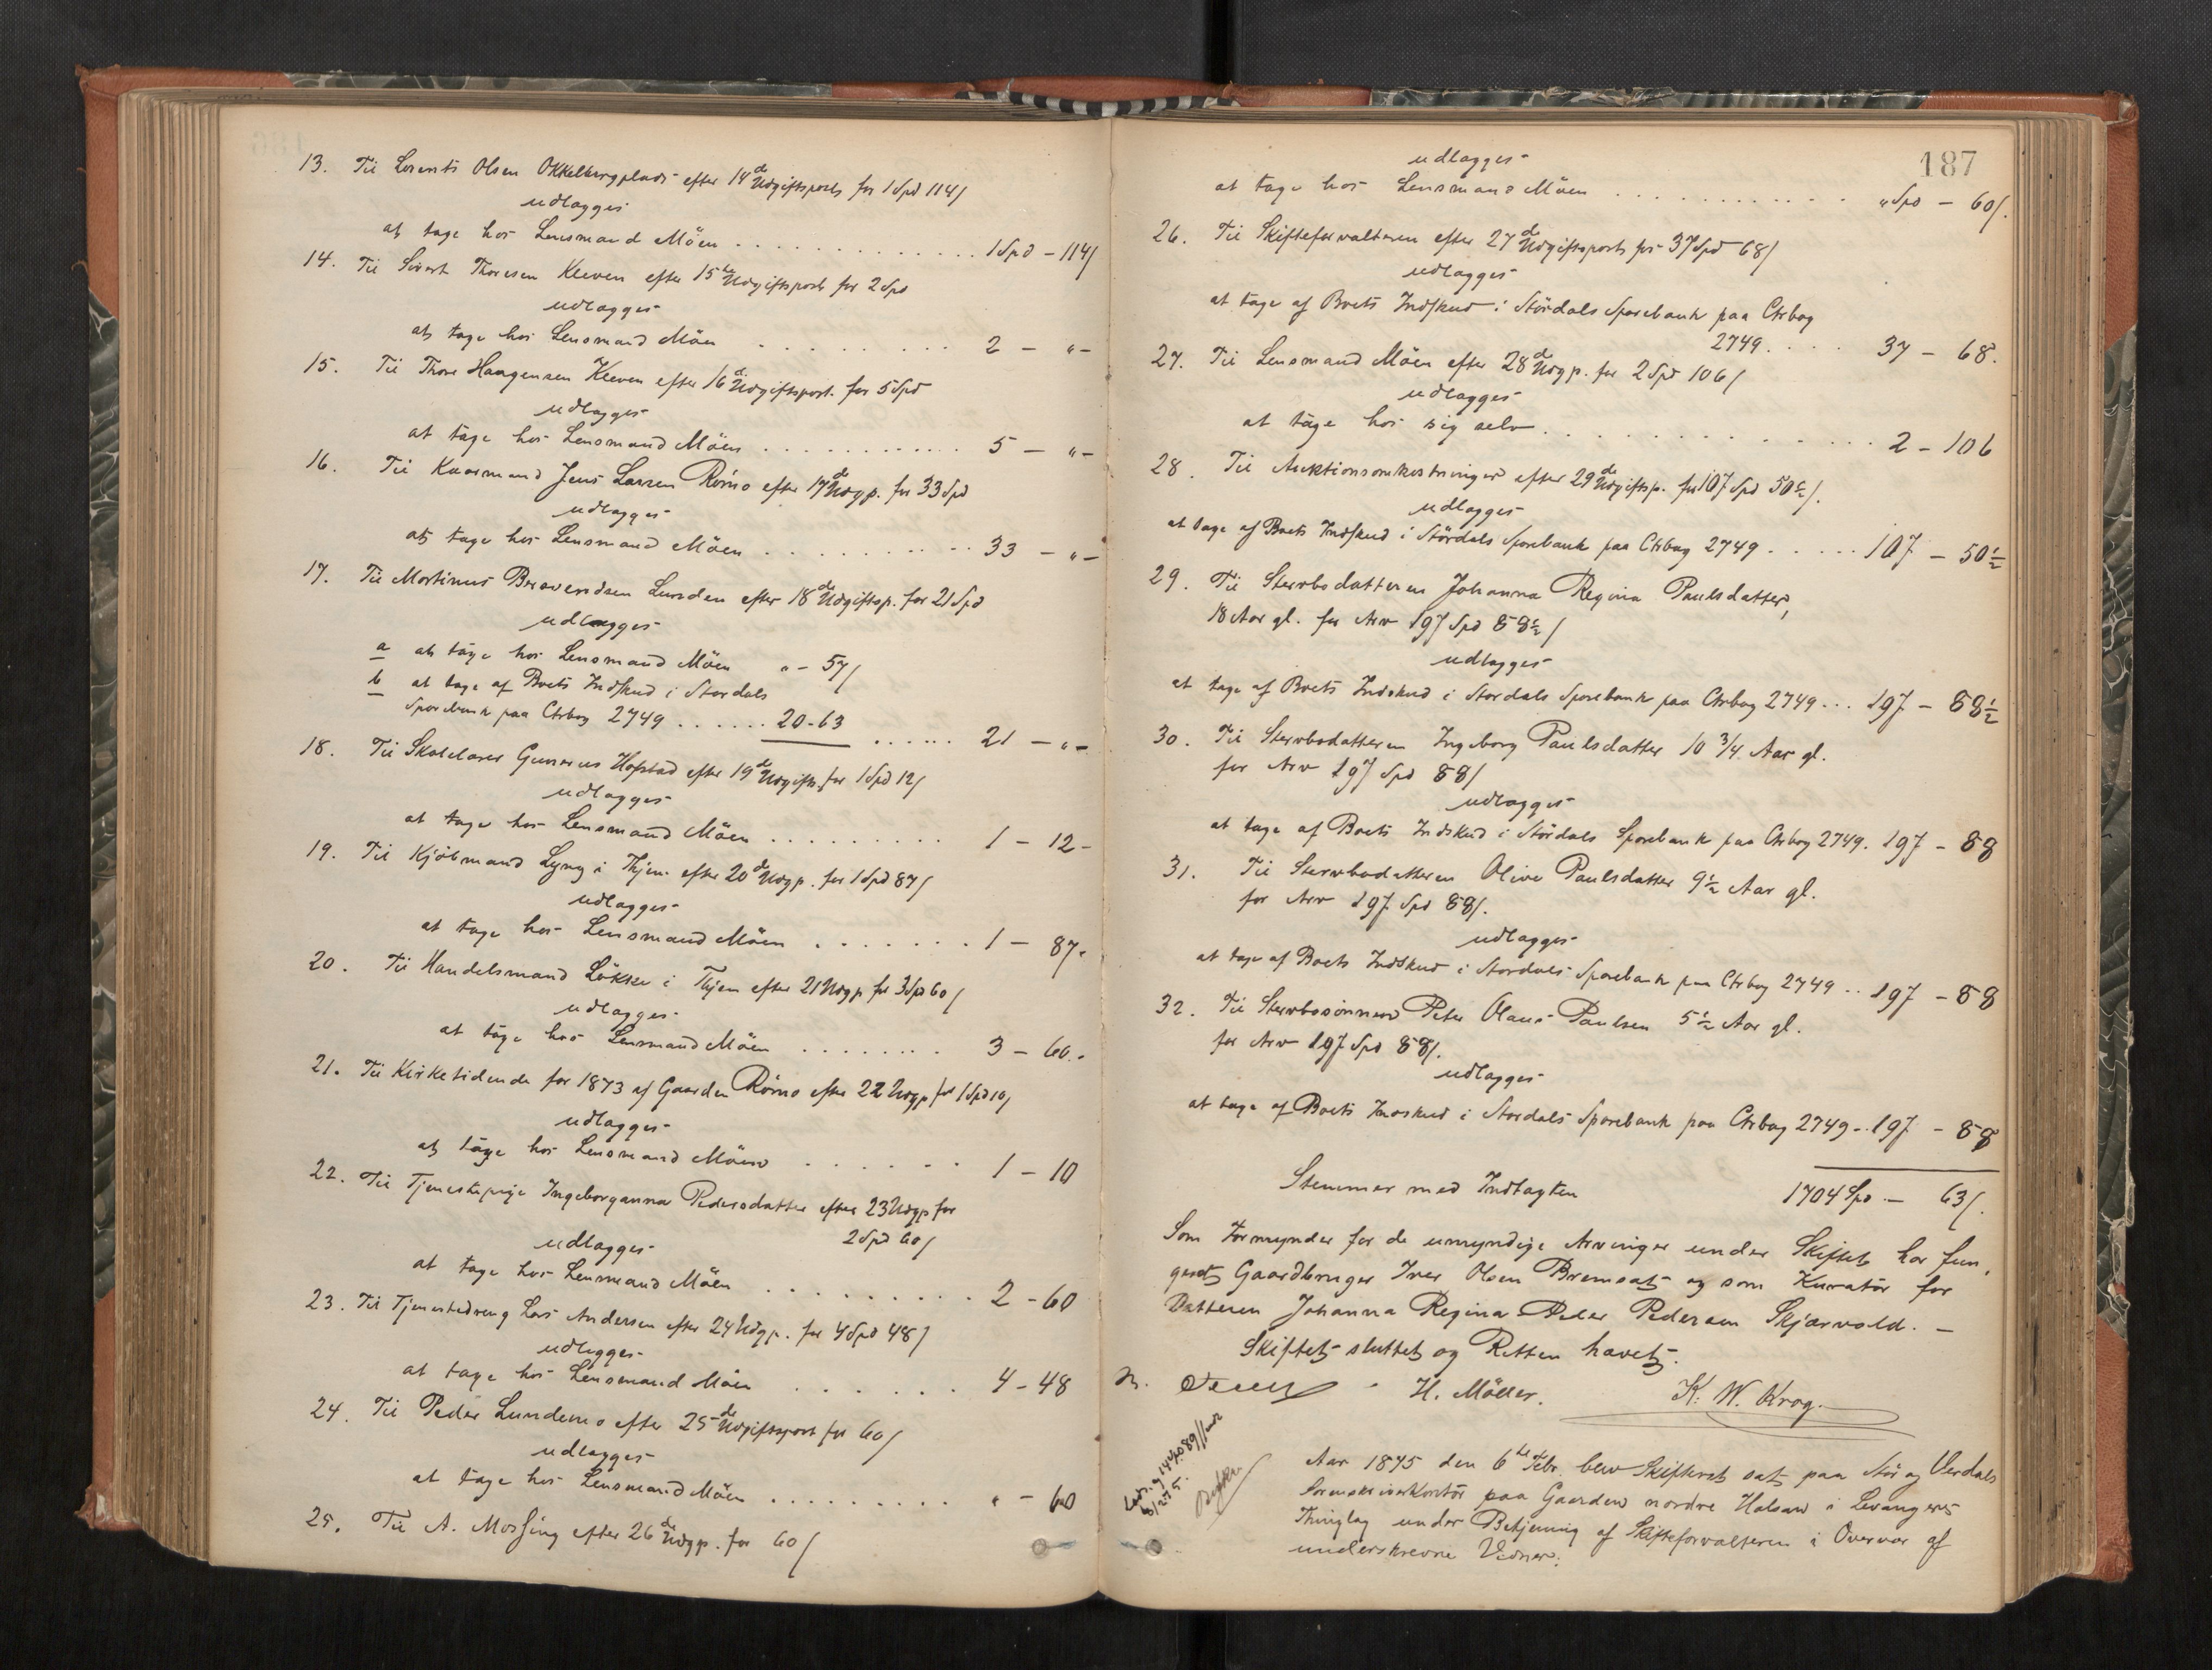 13. Til Lorents Olsen Okkelbergplads efter 14de Udgiftspost for 1 Spd 114/
udlægges
at tage hos Lensmand Möen . . . . . . . . . . . . . 1 Spd – 114/
14. Til Sivert Thoresen Kleven efter 15de Udgiftspost for 2 Spd
udlægges
at tage hos Lensmand Möen . . . . . . . . . 2 – " –
15. Til Thore Haagensen Kleven efter 16de Udgiftspost. for 5 Spd
udlægges
at tage hos Lensmand Möen . . . . . . . . . . . 5 – " –
16. Til Kaarmand Jens Larsen Römo efter 17de Udgp. for 33 Spd
udlægges
at tage hos Lensmand Möen . . . . . . . . . . 33 – " –
17. Til Martinus Bersvendsen Lunden efter 18de Udgiftsp. for 21 Spd
udlægges
a at tage hos Lensmand Möen " – 57/
b at tage af Boets Indskud i Stördals
Sparebank paa Ctrbog 2749 . . . . . . 20 - 63 . . . . . . 21 – " –
18. Til Skolelærer Gunerius Hofstad efter 19de Udgifts. for 1 Spd 12/
udlægges
at tage hos Lensmand Möen . . . . . . . . . 1 – 12 –
19. Til Kjöbmand Lyng i Thjem efter 20de Udgp. for 1 Spd 87/
udlægges
at tage hos Lensmand Möen . . . . . . . 1 – 87.
20. Til Handelsmand Lökke i Thjem efter 21 Udgp for 3 Spd 60/
udlægges
at tage hos Lensmand Möen . . . . . . . . 3 – 60. –
21. Til Kirketiende for 1873 af Gaarden Römo efter 22 Udgp for 1 Spd 10/
udlægges
at tage hos Lensmand Möen . . . . . . 1 – 10
22. Til Tjenestepige Ingeborganna Pedersdatter efter 23 Udgp for
2 Spd 60/
udlægges
at tage hos Lensmand Möen . . . . . . . . . . 2 – 60
23. Til Tjenestedreng Lars Andersen efter 24 Udgp. for 4 Spd 48/
udlægges
at tage hos Lensmand Möen . . . . . . 4 – 48
24. Til Peder Lundemo efter 25de Udgiftspost for 60/
udlægges
at tage hos Lensmand Möen . . . . . . . . . " – 60
25. Til A. Mossing efter 26de Udgp. for 60/
187
udlægges
at tage hos Lensmand Möen . . . . . . . . . . . . " Spd – 60/.
26. Til Skifteforvalteren efter 27de Udgiftspost for 37 Spd 68/
udlægges
at tage af Boets Indskud i Stördals Sparebank paa Ctrbog
2749. . . . . 37 – 68.
27. Til Lensmand Möen efter 28de Udgp. for 2 Spd 106/
udlægges
at tage hos sig selv . . . . . . . . . . . . . . . 2 – 106
28. Til Auktionsomkostninger efter 29de Udgiftsp. for 107 Spd 50½/.
udlægges
at tage af Boets Indskud i Stördals Sparebank paa Ctrbog 2749 . . . . . 107 – 50½
29. Til Stervbodatteren Johanna Regina Paulsdatter,
18 Aar gl. for Arv 197 Spd 88½/
udlægges
at tage af Boets Indskud i Stördals Sparebank paa Ctrbog 2749 . . . 197 – 88½
30. Til Stervbodatteren Ingeborg Paulsdatter 10 3/4 Aar gl.
for Arv 197 Spd 88/
udlægges
at tage af Boets Indskud i Stördals Sparebank paa Ctrbog 2749. 197 – 88
31. Til Stervbodatteren Olive Paulsdatter 9½ Aar gl.
for Arv 197 Spd 88/.
udlægges
at tage af Boets Indskud i Stördals Sparebank paa Ctrbog 2749 . . 197 – 88
32. Til Stervbosönnen Peter Olaus Paulsen 5½ Aar gl.
for Arv 197 Spd 88/.
udlægges
at tage af Boets Indskud i Stördals Sparebank paa Ctrbog 2749 – 197 – 88
Stemmer med Indtægten 1704 Spd. – 63/.
Som Formynder for de umyndige Arvinger under Skiftet har fun-
geret Gaardbruger Iver Olsen Bremsat og som Kurator for
Datteren Johanna Regina Peder Pedersen Skjærvold. –
Skiftet sluttet og Retten hævet.
H. Möller. K. W. Krog.
Aar 1875 den 6te Febr. blev Skifteret sat paa Stör og Verdals
Sorenskriverkontör paa Gaarden nordre Halsan i Levangers
Thinglag under Betjening af Skifteforvalteren i Overvær af
underskrevne Vidner.